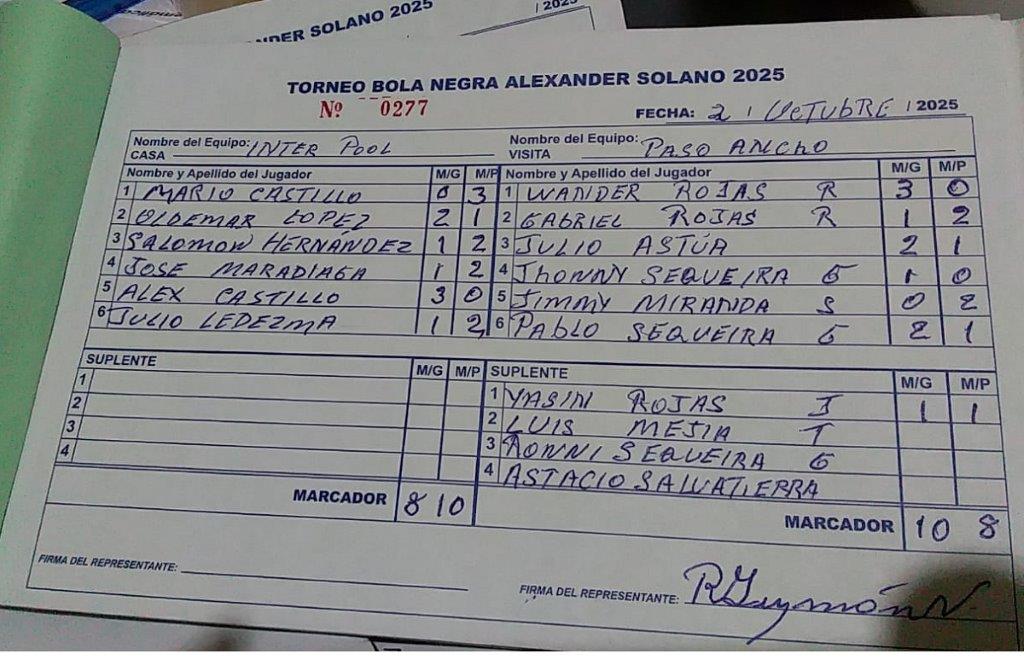 NDER SOLANO 2025
/ 2025
TORNEO BOLA NEGRA ALEXANDER SOLANO 2025
Nº 0277
FECHA: 2 / OCTUBRE / 2025
Nombre del Equipo: INTER POOL
CASA
Nombre del Equipo: PASO ANCHO
VISITA
Nombre y Apellido del Jugador M/G M/P Nombre y Apellido del Jugador M/G M/P
1 MARIO CASTILLO 0 3 1 WANDER ROJAS R 3 0
2 OLDEMAR LOPEZ 2 1 2 GABRIEL ROJAS R 1 2
3 SALOMON HERNÁNDEZ 1 2 3 JULIO ASTÚA 2 1
4 JOSE MARADIAGA 1 2 4 JHONNY SEQUEIRA G 1 0
5 ALEX CASTILLO 3 0 5 JIMMY MIRANDA S 0 2
6 JULIO LEDEZMA 1 2 6 PABLO SEQUEIRA G 2 1
SUPLENTE M/G M/P SUPLENTE M/G M/P
1 1 YASIN ROJAS J 1 1
2 2 LUIS MEJIA T
3 3 RONNI SEQUEIRA G
4 4 ASTACIO SALVATIERRA
MARCADOR 8 10 MARCADOR 10 8
FIRMA DEL REPRESENTANTE:
FIRMA DEL REPRESENTANTE: